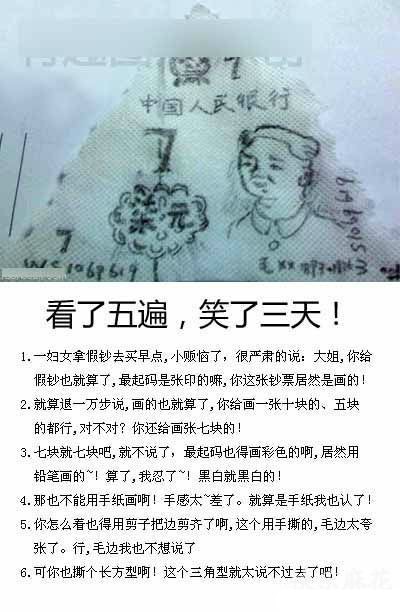 7
中国人民银行
7
柒元
7
WC1069619
看了五遍，笑了三天！
1.一妇女拿假钞去买早点,小贩恼了，很严肃的说：大姐,你给
假钞也就算了,最起码是张印的嘛,你这张钞票居然是画的！
2.就算退一万步说,画的也就算了,你给画一张十块的、五块
的都行,对不对？你还给画张七块的！
3.七块就七块吧,就不说了，最起码也得画彩色的啊,居然用
铅笔画的~！算了,我忍了~！黑白就黑白的！
4.那也不能用手纸画啊！手感太~差了。就算是手纸我也认了！
5.你怎么看也得用剪子把边剪齐了啊,这个用手撕的,毛边太夸
张了。行,毛边我也不想说了
6.可你也撕个长方型啊！这个三角型就太说不过去了吧！